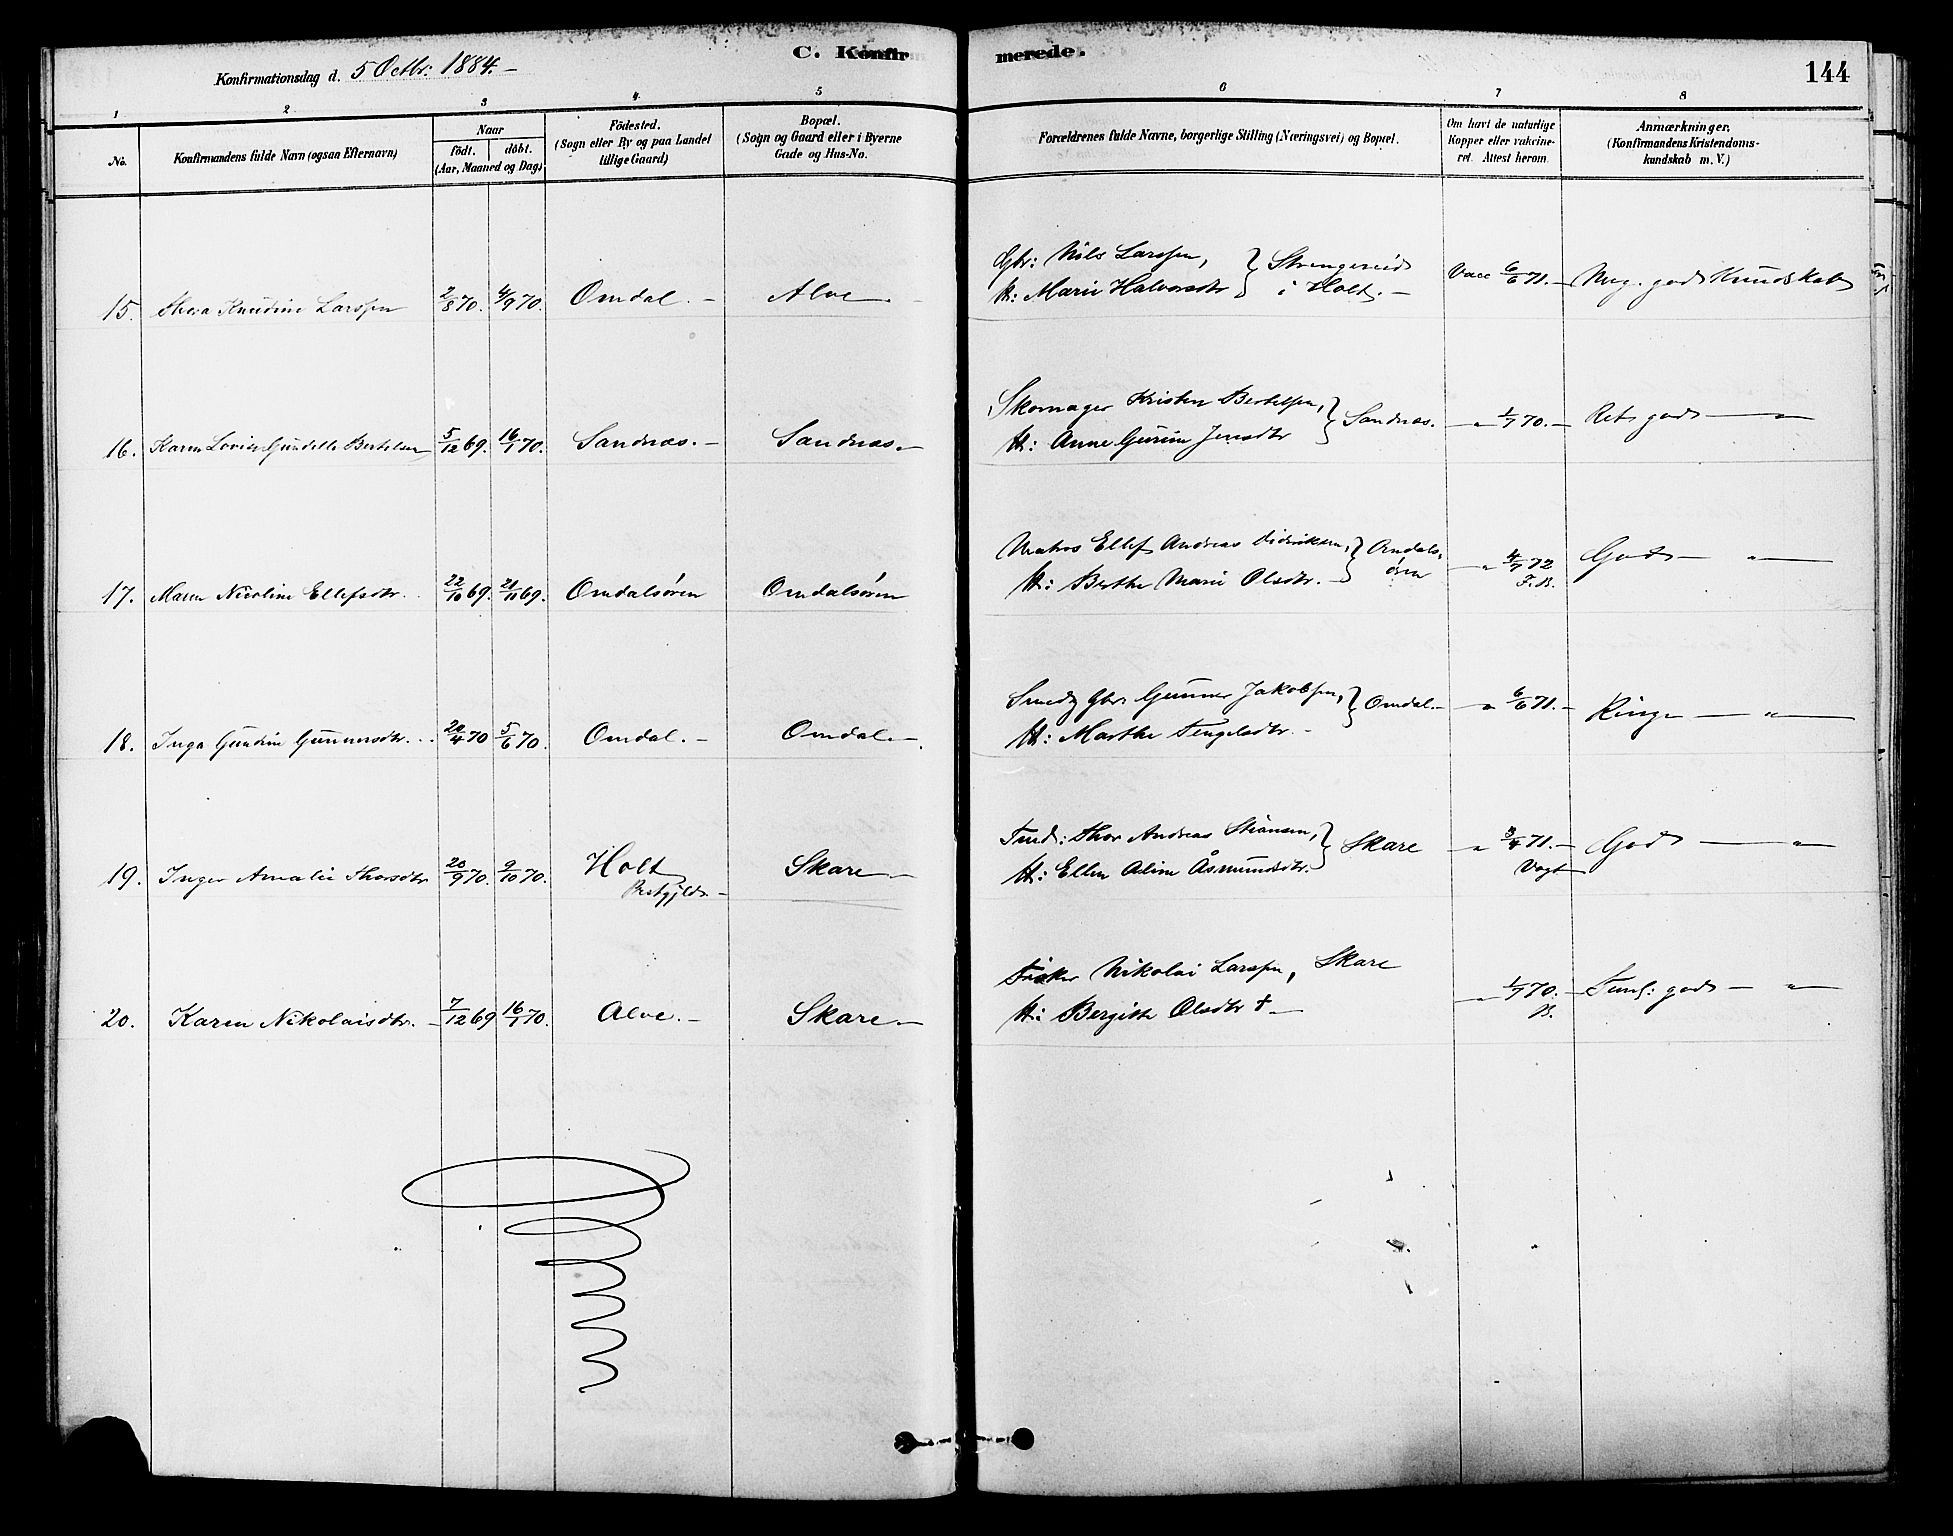 C. Konfirmerede.
144
Konfirmationsdag d. 5 Octbr: 1884.-
1 2 3 4 5 6 7 8
No.
Konfirmandens fulde Navn (ogsaa Efternavn)
Naar
födt. döbt.
(Aar, Maaned og Dag)
Födested.
(Sogn eller By og paa Landet
tillige Gaard)
Bopæl.
(Sogn og Gaard eller i Byerne
Gade og Hus-No.
Forældrenes fulde Navne, borgerlige Stilling (Næringsvei) og Bopæl.
Om havt de naturlige
Kopper eller vakcine-
ret. Attest herom.
Anmærkninger.
(Konfirmandens Kristendoms-
kundskab m. V.)
Gbr: Nils Larssen, } Strengereid
H: Marie Halvorsdtr } i Holt.-
15. Thora Knudine Larssen 2/8 70. 4/9 70. Omdal.- Alve - Vacc 6/6 71.- Mug. god Kundskab
Skomager Kristen Bertelsen, } Sandnæs.
H: Anne Gurine Jensdtr
16. Karen Lovise Gundelle Bertelsen 5/12 69. 16/1 70. Sandnæs.- Sandnæs.- - " 1/7 70.- Ret god - "
Matros Ellef Andreas Didriksen, } Omdals-
H: Berthe Marie Olsdtr.- } øren
17. Maren Nicoline Ellefsdtr. 22/10 69. 21/11 69. Omdalsøren Omdalsøren - " 4/7 72 God - "
F. B.
Smed, Gbr. Gunner Jakobsen, } Omdal.-
H: Marthe Tengelsdtr.-
18. Inga Gundine Gunnersdtr. 24/4 70 5/6 70. Omdal.- Omdal.- - " 6/6 71.- Ringe - "
Tind: Thor Andreas } Skare
H: Ellen Aline Åsmundsdtr.
19. Inger Amalie Thorsdtr 20/9 70. 9/10 70. Holt Skare - " 3/4 71.- God - "
Prestgjeld.-
Vogt
Fisker Nikolai Larssen, Skare
H: Bergitte Olsdtr † -
20. Karen Nikolaisdtr.- 7/12 69 16/1 70. Alve.- Skare.- - " 1/7 70.- Teml: god - "
B.